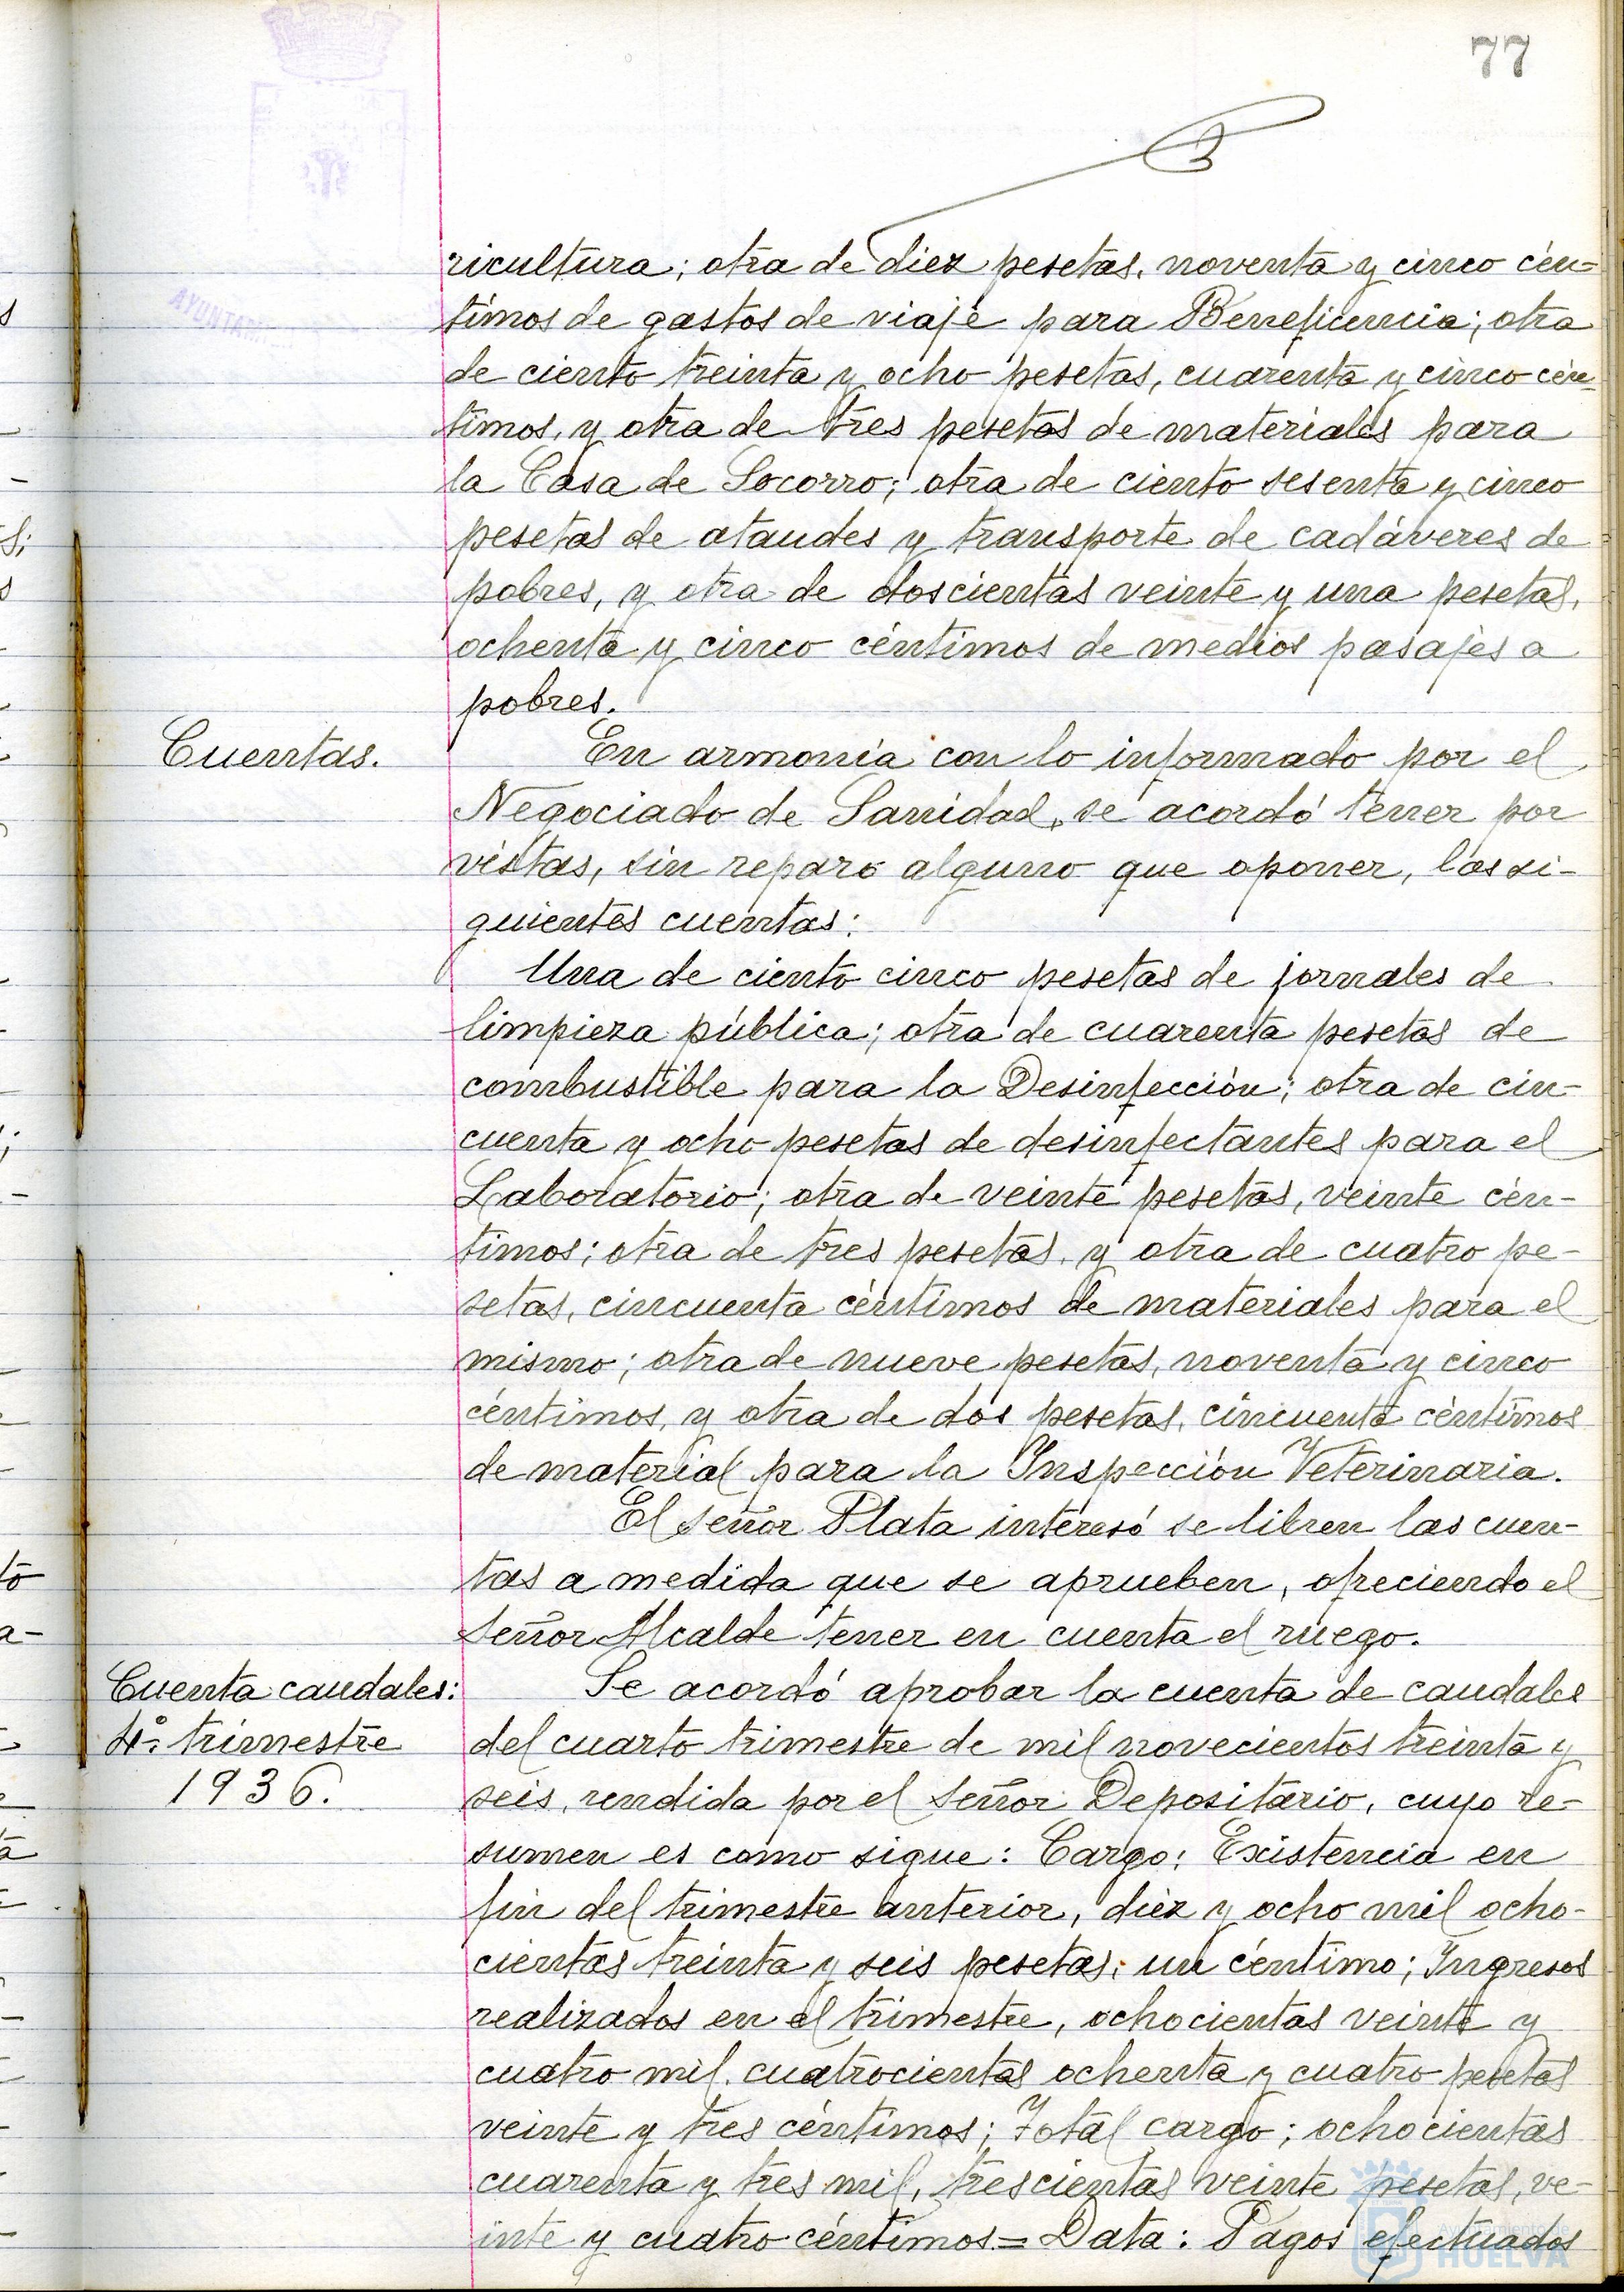 77
ricultura; otra de diez pesetas, noventa y cinco cén=
timos de gastos de viaje para Beneficencia; otra
de ciento treinta y ocho pesetas, cuarenta y cinco cén=
timos, y otra de tres pesetas de materiales para
la Casa de Socorro; otra de ciento sesenta y cinco
pesetas de ataudes y transporte de cadáveres de
pobres, y otra de doscientas veinte y una pesetas,
ochenta y cinco céntimos de medios pasajes a
pobres.
Cuentas.
En armonía con lo informado por el
Negociado de Sanidad, se acordó tener por
vistas, sin reparo alguno que oponer, las si-
guientes cuentas:
Una de ciento cinco pesetas de jornales de
limpieza pública; otra de cuarenta pesetas de
combustible para la Desinfección; otra de cin-
cuenta y ocho pesetas de desinfectantes para el
Laboratorio; otra de veinte pesetas, veinte cén-
timos; otra de tres pesetas, y otra de cuatro pe-
setas, cincuenta céntimos de materiales para el
mismo; otra de nueve pesetas, noventa y cinco
céntimos, y otra de dos pesetas, cincuenta céntimos
de material para la Inspección Veterinaria.
El señor Plata interesó se libren las cuen-
tas a medida que se aprueben, ofreciendo el
señor Alcalde tener en cuenta el ruego.
Cuenta caudales:
4º trimestre
1936.
Se acordó aprobar la cuenta de caudales
del cuarto trimestre de mil novecientos treinta y
seis, rendida por el señor Depositario, cuyo re-
sumen es como sigue: Cargo: Existencia en
fin del trimestre anterior, diez y ocho mil ocho-
cientas treinta y seis pesetas, un céntimo; Ingresos
realizados en el trimestre, ochocientas veinte y
cuatro mil, cuatrocientas ochenta y cuatro pesetas
veinte y tres céntimos; Total cargo; ochocientas
cuarenta y tres mil, trescientas veinte pesetas, ve-
inte y cuatro céntimos = Data: Pagos efectuados
Ayuntamiento de
HUELVA